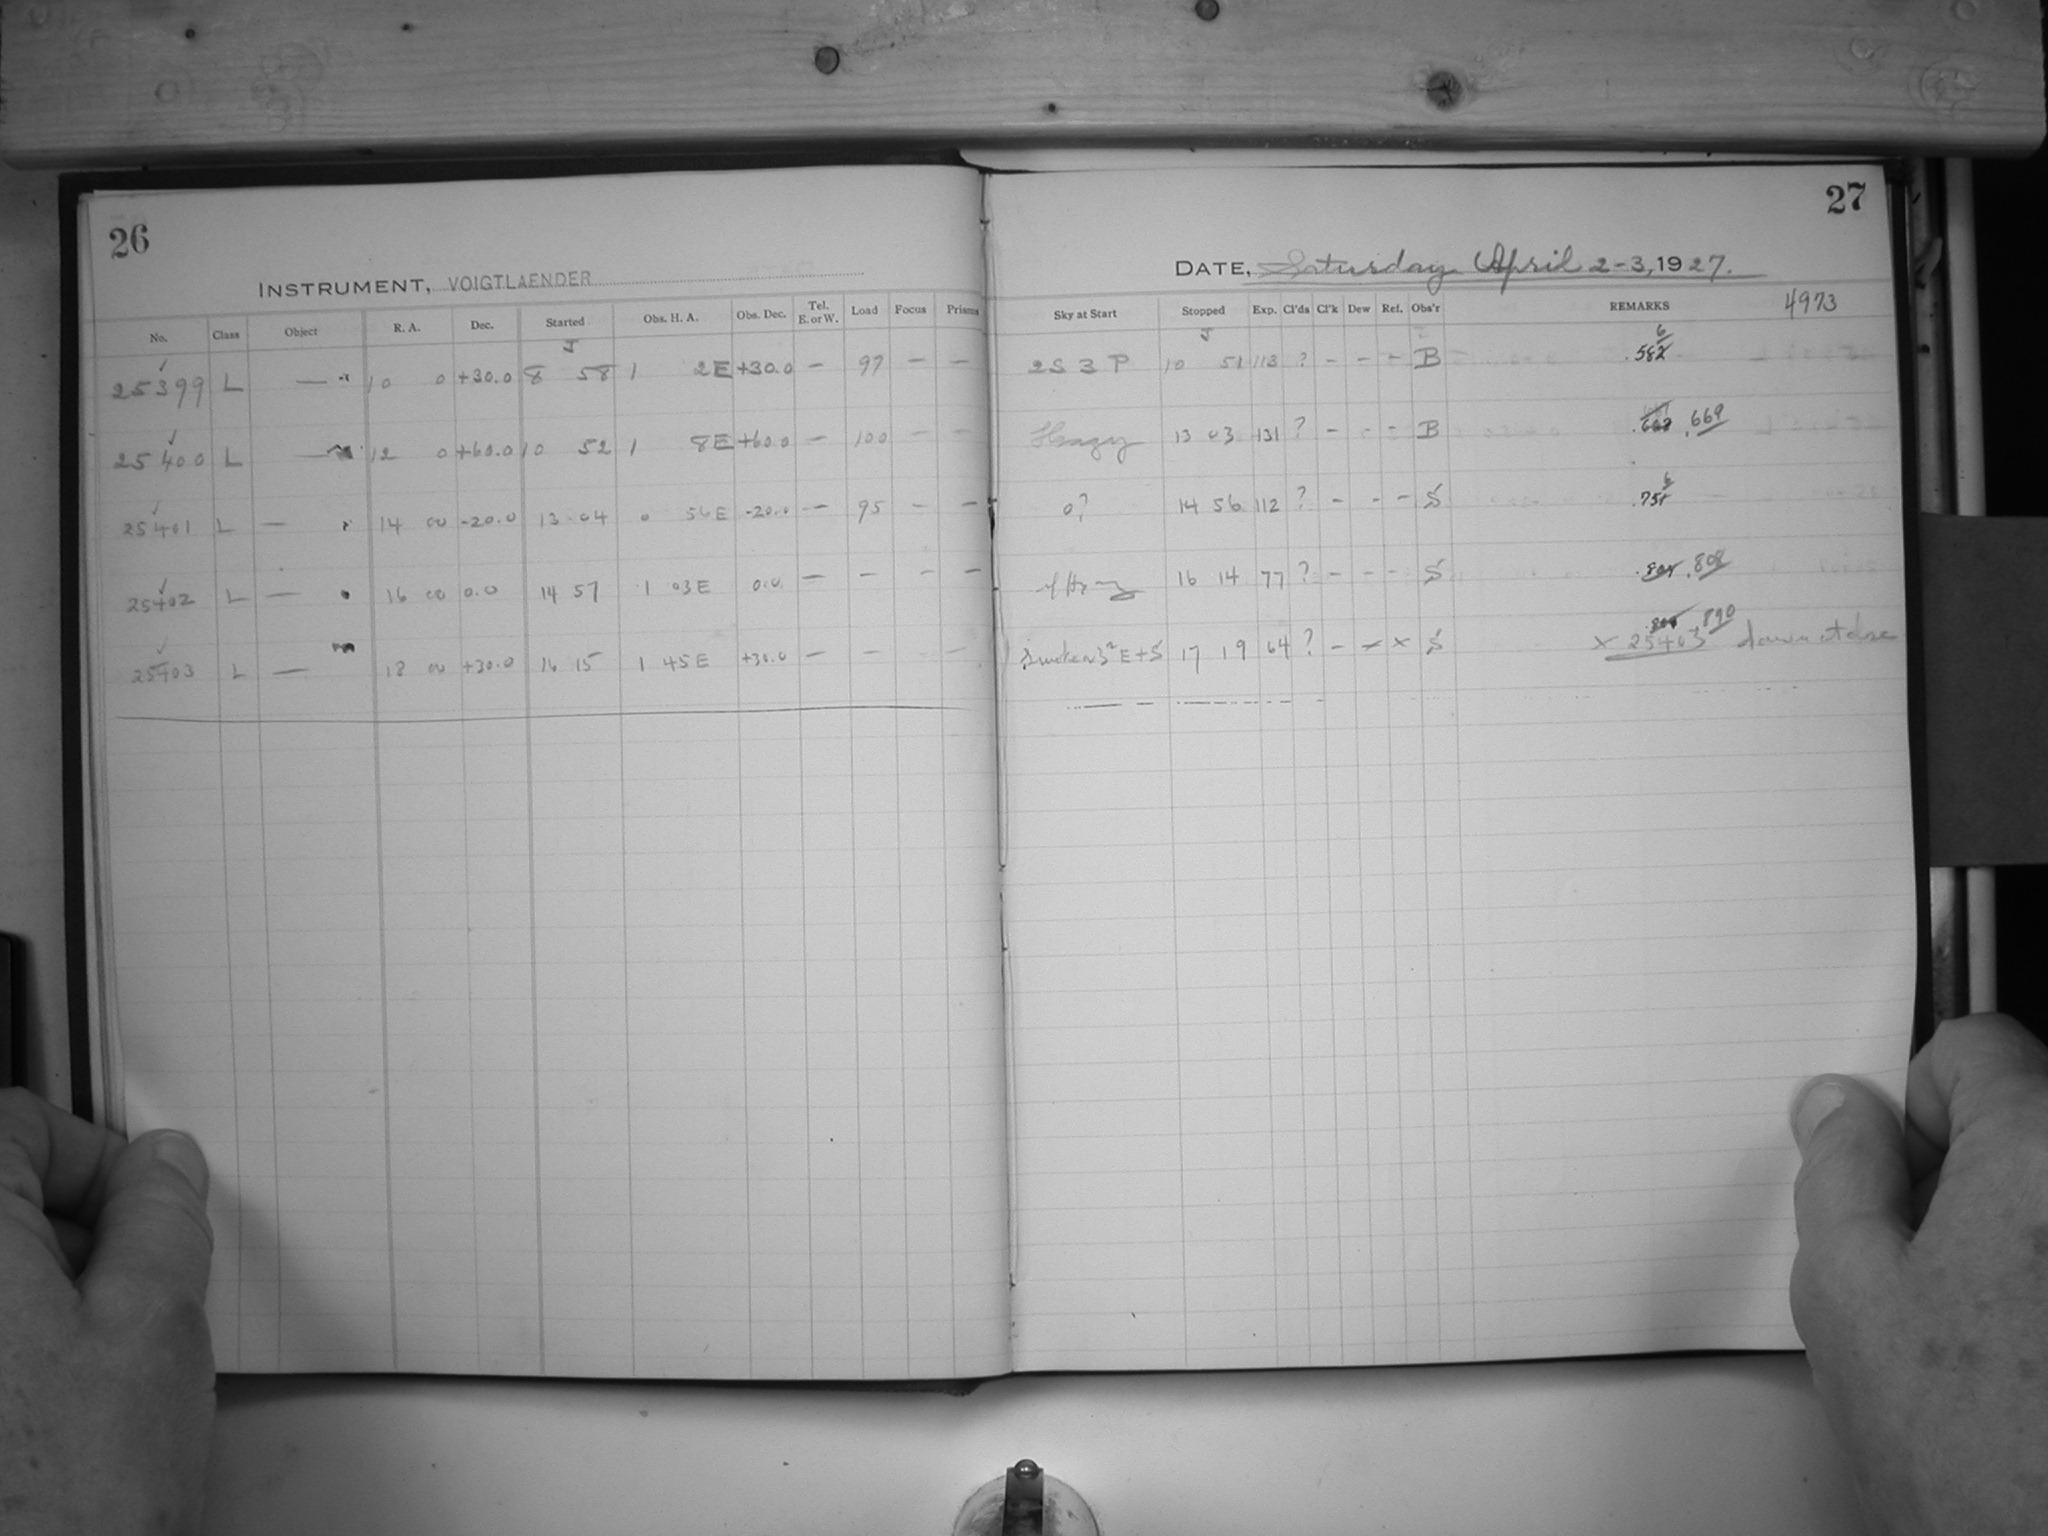 26
INSTRUMENT, VOIGTLAENDER
No. Class Object R. A. Dec. Started Obs. H. A. Obs. Dec. Tel. E. or W. Load Focus Prisms
25399 L — 10 0 +30.0 8 58 1 2E +30.0 — 97 — —
25400 L — 12 0 +60.0 10 52 1 8E +60.0 — 100 — —
25401 L — 14 00 -20.0 13 04 0 56E -20.0 — 95 — —
25402 L — 16 00 0.0 14 57 1 03E 0.0 — — — —
25403 L — 18 00 +30.0 16 15 1 45E +30.0 — — — —
27
DATE, Saturday April 2-3, 1927.
Sky at Start Stopped Exp. Cl'ds Cl'k Dew Ref. Obs'r REMARKS 4973
2S 3 P 10 51 113 ? - - - B .582 6
Hazy 13 03 131 ? - - - B .669
0? 14 56 112 ? - - - S .751 6
Hazy 16 14 77 ? - - - S .808
E+S 17 19 64 ? - x x S .890
x 25403 dawn at close